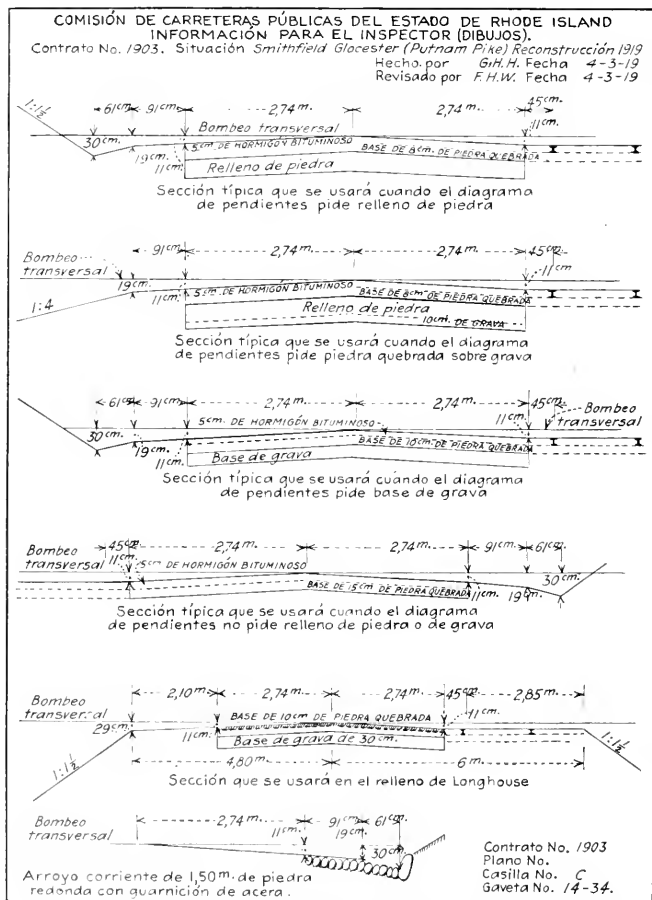 COMISIÓN DE CARRETERAS PÚBLICAS DEL ESTADO DE RHODE ISLAND
INFORMACIÓN PARA EL INSPECTOR (DIBUJOS).
Contrato No. 1903. Situación Smithfield Glocester (Putnam Pike) Reconstrucción 1919
Hecho por G.H.H. Fecha 4-3-19
Revisado por F.H.W. Fecha 4-3-19
1:1½ 61cm. 91cm. 2,74m. 2,74m. 45cm.
Bombeo transversal 11cm.
30cm. 19cm. 11cm. 5cm. DE HORMIGÓN BITUMINOSO BASE DE 8cm. DE PIEDRA QUEBRADA
Relleno de piedra
Sección típica que se usará cuando el diagrama
de pendientes pide relleno de piedra
Bombeo transversal 91cm. 2,74m. 2,74m. 45cm.
19cm. 11cm
1:4 11cm. 5cm. DE HORMIGÓN BITUMINOSO BASE DE 8cm. DE PIEDRA QUEBRADA
Relleno de piedra
10cm. DE GRAVA
Sección típica que se usará cuando el diagrama
de pendientes pide piedra quebrada sobre grava
61cm. 91cm. 2,74m. 2,74m. 45cm. Bombeo transversal
5cm. DE HORMIGÓN BITUMINOSO 11cm.
30cm. 19cm. 11cm. BASE DE 10cm. DE PIEDRA QUEBRADA
Base de grava
Sección típica que se usará cuando el diagrama
de pendientes pide base de grava
Bombeo transversal 45cm. 2,74m. 2,74m. 91cm. 61cm.
11cm. 5cm DE HORMIGÓN BITUMINOSO 30cm.
BASE DE 15cm. DE PIEDRA QUEBRADA 11cm. 19cm.
Sección típica que se usará cuando el diagrama
de pendientes no pide relleno de piedra o de grava
Bombeo transversal 2,10m. 2,74m. 2,74m. 45cm. 2,85m.
29cm. 11cm. BASE DE 10cm DE PIEDRA QUEBRADA 11cm.
Base de grava de 30cm.
1:1½ 4,80m. 6m. 1:1½
Sección que se usará en el relleno de Longhouse
Bombeo transversal 2,74m. 91cm. 61cm.
11cm. 19cm. 30cm.
Arroyo corriente de 1,50m. de piedra
redonda con guarnición de acera.
Contrato No. 1903
Plano No.
Casilla No. C
Gaveta No. 14-34.